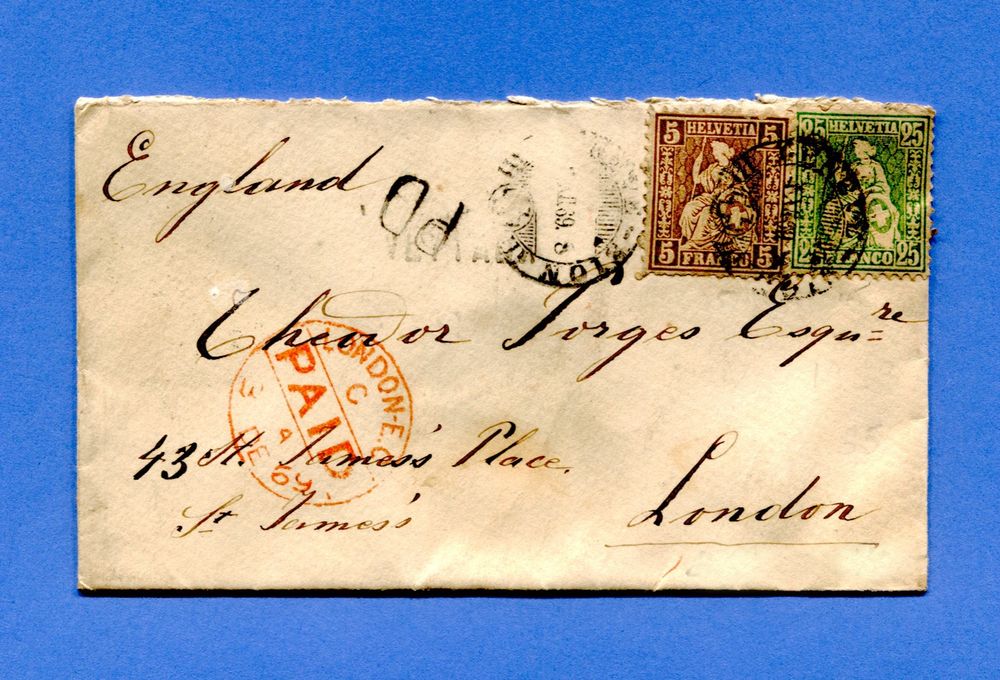 England
PD
69 8
5 HELVETIA 5
5 FRANCO 5
25 HELVETIA 25
25 FRANCO 25
Theodor Jorges Esqu=re
LONDON-E.C
C
PAID
3
A
DE 69
43 St. James's Place.
St James's
London